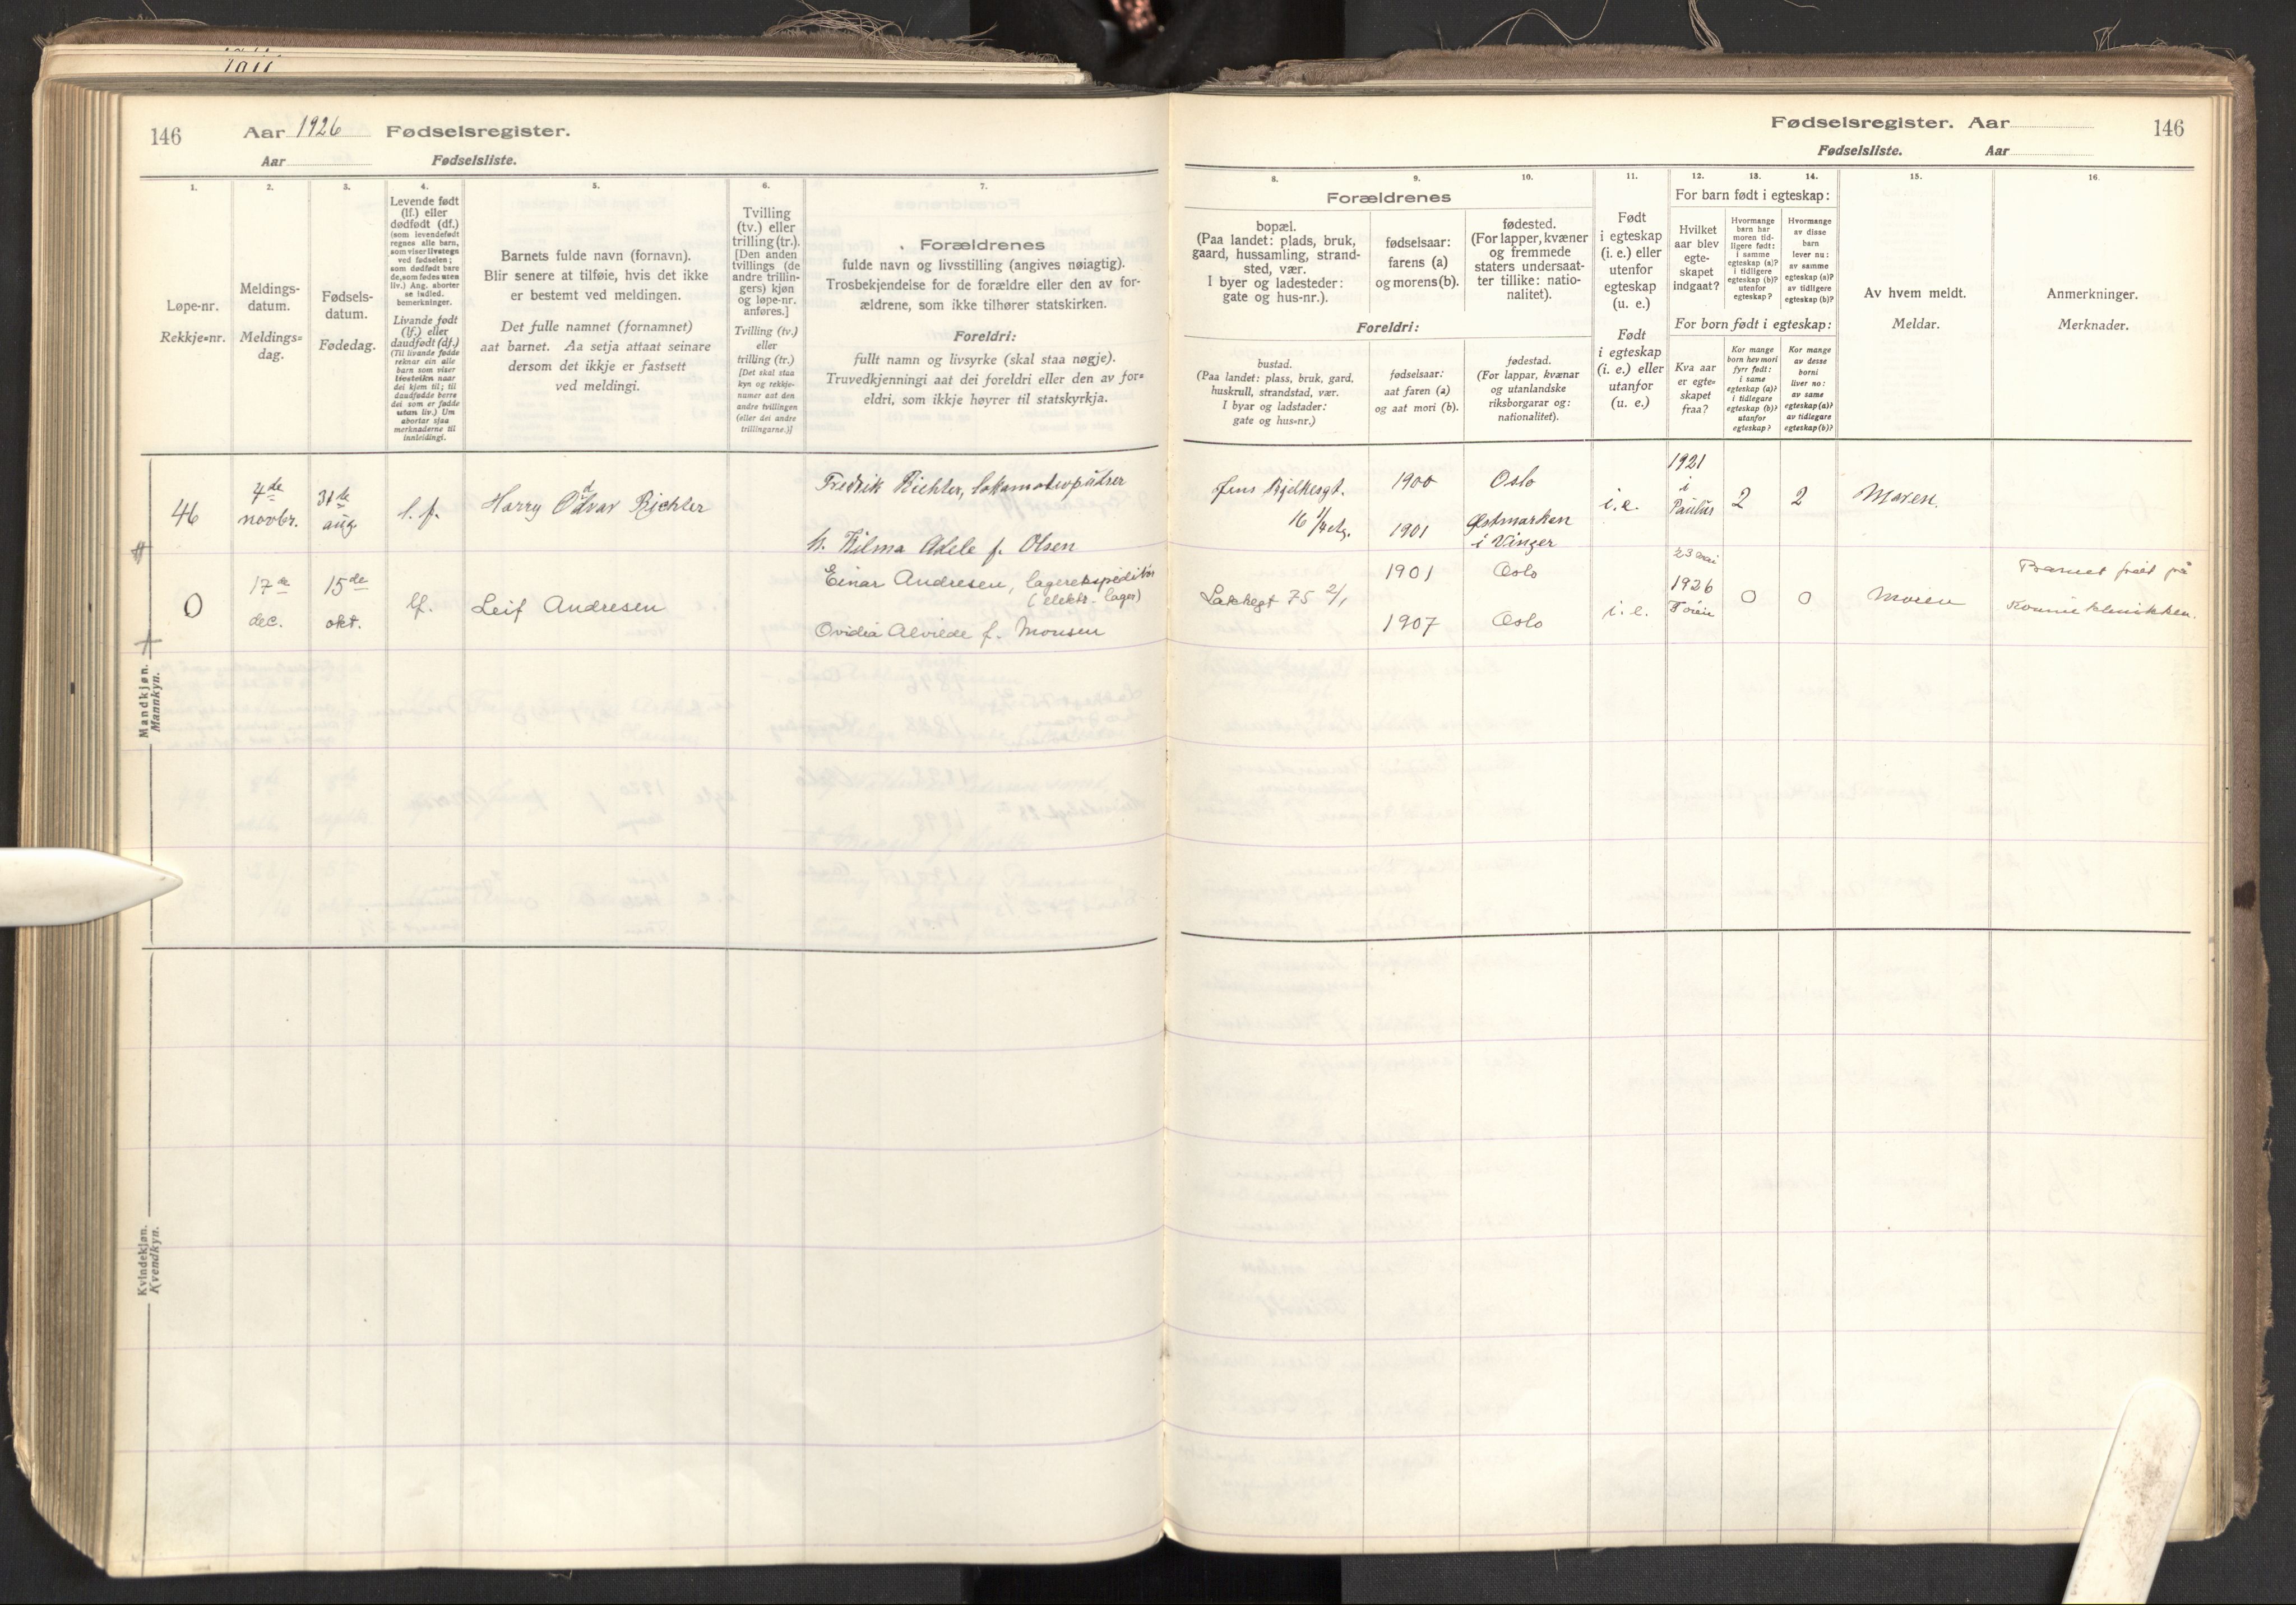 146
Aar 1926 Fødselsregister.
Aar Fødselsliste.
1.
Løpe-nr.
Rekkje-nr.
2.
Meldings-
datum.
Meldings-
dag.
3.
Fødsels-
datum.
Fødedag.
4.
Levende født
(lf.) eller
dødfødt (df.)
(som levendefødt
regnes alle barn,
som viser livstegn
ved fødselen;
som dødfødt bare
de, som fødes uten
liv.) Ang. aborter
se indled.
bemerkninger.
Livande født
(lf.) eller
daudfødt (df.)
(Til livande fødde
reknar ein alle
barn som viser
livsteikn naar
dei kjem til; til
daudfødde berre
dei som er fødde
utan liv.) Um
abortar sjaa
merknaderne til
innleidingi.
5.
Barnets fulde navn (fornavn).
Blir senere at tilføie, hvis det ikke
er bestemt ved meldingen.
Det fulle namnet (fornamnet)
aat barnet. Aa setja attaat seinare
dersom det ikkje er fastsett
ved meldingi.
6.
Tvilling
(tv.) eller
trilling (tr.).
[Den anden
tvillings (de
andre trillin-
gers) kjøn
og løpe-nr.
anføres.]
Tvilling (tv.)
eller
trilling (tr.)
[Det skal staa
kyn og rekkje-
numer aat den
andre tvillingen
(eller dei andre
trillingarne.)]
7.
Forældrenes
fulde navn og livsstilling (angives nøiagtig).
Trosbekjendelse for de forældre eller den av for-
ældrene, som ikke tilhører statskirken.
Foreldri:
fullt namn og livsyrke (skal staa nøgje).
Truvedkjenningi aat dei foreldri eller den av for-
eldri, som ikkje høyrer til statskyrkja.
Mandkjøn.
Mannkyn.
46
4de
novbr.
31te
aug.
l.f.
Harry Odvar Richter
d
Fredrik Richter, lokomotivpudser
h. Hilma Adele f. Olsen
0
17de
dec.
15de
okt.
lf.
Leif Andresen
Einar Andresen, lagerekspeditør
(elektr. lager)
Ovidia Alvilde f. Monsen
Kvindekjøn.
Kvendkyn.
Fødselsregister. Aar
146
Fødselsliste. Aar
8.
9.
10.
Forældrenes
bopæl.
(Paa landet: plads, bruk,
gaard, hussamling, strand-
sted, vær.
I byer og ladesteder:
gate og hus-nr.).
fødselsaar:
farens (a)
og morens (b).
fødested.
(For lapper, kvæner
og fremmede
staters undersaat-
ter tillike: natio-
nalitet).
Foreldri:
bustad.
(Paa landet: plass, bruk, gard,
huskrull, strandstad, vær.
I byar og ladstader:
gate og hus-nr.)
fødselsaar:
aat faren (a)
og aat mori (b).
fødestad.
(For lappar, kvænar
og utanlandske
riksborgarar og:
nationalitet).
11.
Født
i egteskap
(i. e.) eller
utenfor
egteskap
(u. e.)
Født
i egteskap
(i. e.) eller
utanfor
(u. e.)
12.
13.
14.
For barn født i egteskap:
Hvilket
aar blev
egte-
skapet
indgaat?
Hvormange
barn har
moren tid-
ligere født:
i samme
egteskap (a)?
i tidligere
egteskap (b)?
utenfor
egteskap?
Hvormange
av disse
barn
lever nu:
av samme
egteskap (a)?
av tidligere
egteskap (b)?
For born født i egteskap:
Kva aar
er egte-
skapet
fraa?
Kor mange
born hev mori
fyrr født:
i same
egteskap (a)?
i tidlegare
egteskap (b)?
utanfor
egteskap?
Kor mange
av desse
borni
liver no:
av same
egteskap (a)?
av tidlegare
egteskap (b)?
15.
Av hvem meldt.
Meldar.
16.
Anmerkninger.
Merknader.
Jens Bjelkesgt.
16 1/4 etg.
1900
1901
Oslo
Østmarken
i Vinger
i.e.
1921
i
Paulus
2
2
Moren.
Lakkegt 75 2/1
1901
1907
Oslo
Oslo
i.e.
23 mai
1926
Tøien
0
0
Moren
Barnet født på
Kvinneklinikken.